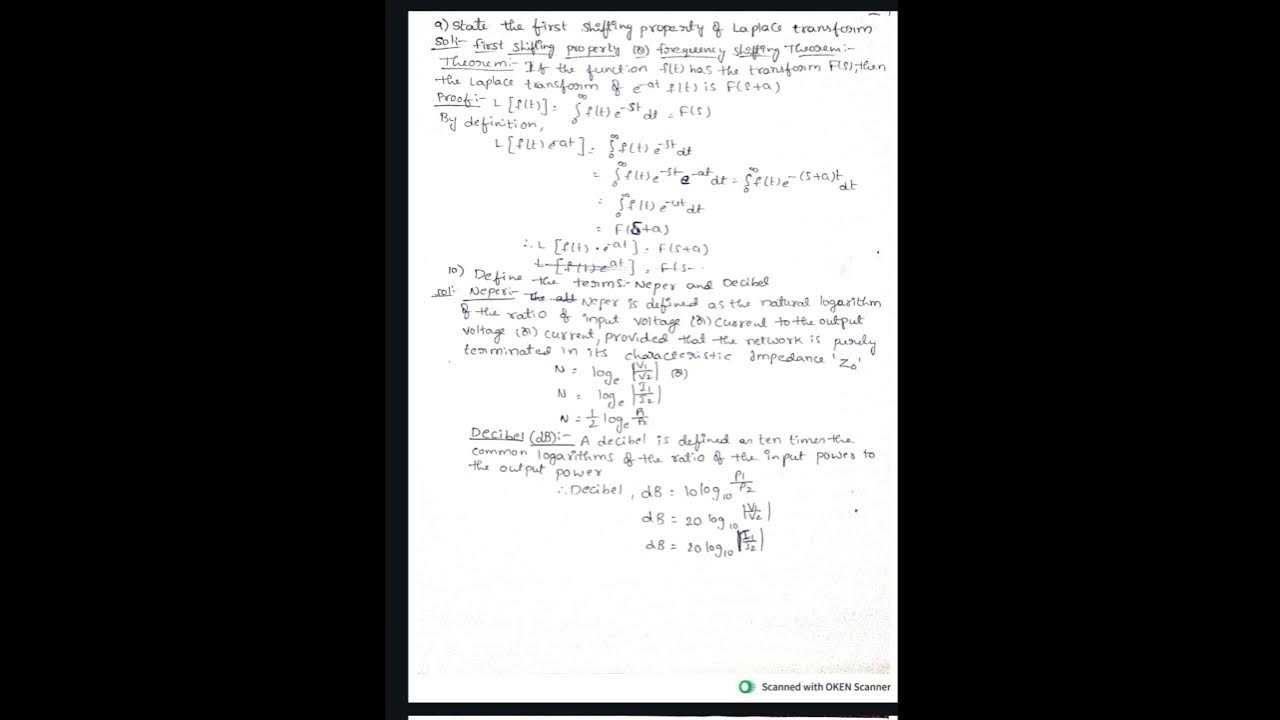 9) State the first shifting property of Laplace transform
Sol:- first shifting property (or) frequency shifting Theorem:-
Theorem:- If the function f(t) has the transform F(s), then
the Laplace transform of e^-at f(t) is F(s+a)
Proof:- L[f(t)] = ∫₀^∞ f(t) e^-st dt = F(s)
By definition,
L[f(t) e^-at] = ∫₀^∞ f(t) e^-st dt
= ∫₀^∞ f(t) e^-st e^-at dt = ∫₀^∞ f(t) e^-(s+a)t dt
= ∫₀^∞ f(t) e^-ut dt
= F(s+a)
∴ L[f(t) · e^-at] = F(s+a)
L[f(t) e^at] = F(s-
10) Define the terms:- Neper and Decibel
sol: Neper:- Neper is defined as the natural logarithm
of the ratio of input voltage (or) current to the output
voltage (or) current, provided that the network is purely
terminated in its characteristic impedance 'Z₀'
N = log_e |V₁/V₂| (or)
N = log_e |I₁/I₂|
N = 1/2 log_e P₁/P₂
Decibel (dB):- A decibel is defined as ten times the
common logarithms of the ratio of the input power to
the output power
∴ Decibel, dB = 10 log₁₀ P₁/P₂
dB = 20 log₁₀ |V₁/V₂|
dB = 20 log₁₀ |I₁/I₂|
Scanned with OKEN Scanner